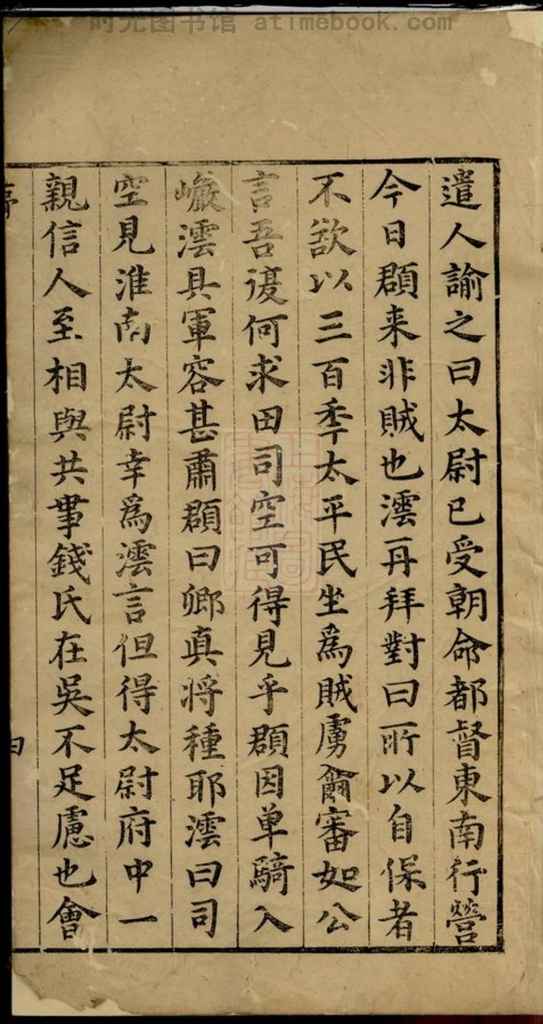 时光图书馆 atimebook.com
遣人諭之曰太尉已受朝命都督東南行營
今日頵来非賊也澐再拜對曰所以自保者
不欲以三百季太平民坐為賊虜爾審如公
言吾復何求田司空可得見乎頵因单騎入
巘澐具軍容甚肅頵曰卿真將種耶澐曰司
空見淮南太尉幸為澐言但得太尉府中一
親信人至相與共事錢氏在吳不足慮也會